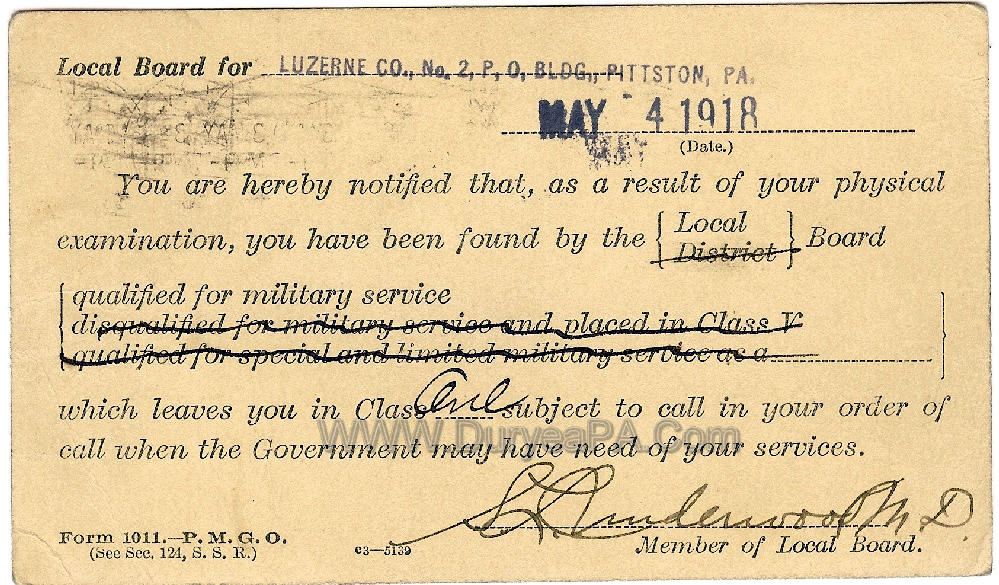 Local Board for LUZERNE CO., No. 2, P. O. BLDG., PITTSTON, PA.
MAY 4 1918
(Date.)
You are hereby notified that, as a result of your physical
examination, you have been found by the { Local
District } Board
qualified for military service
disqualified for military service and placed in Class V
qualified for special and limited military service as a
which leaves you in Class One subject to call in your order of
WWW.DuryeaPA.Com
call when the Government may have need of your services.
Underwood M. D.
Form 1011.—P. M. G. O.
Member of Local Board.
(See Sec. 124, S. S. R.)
c3—5139